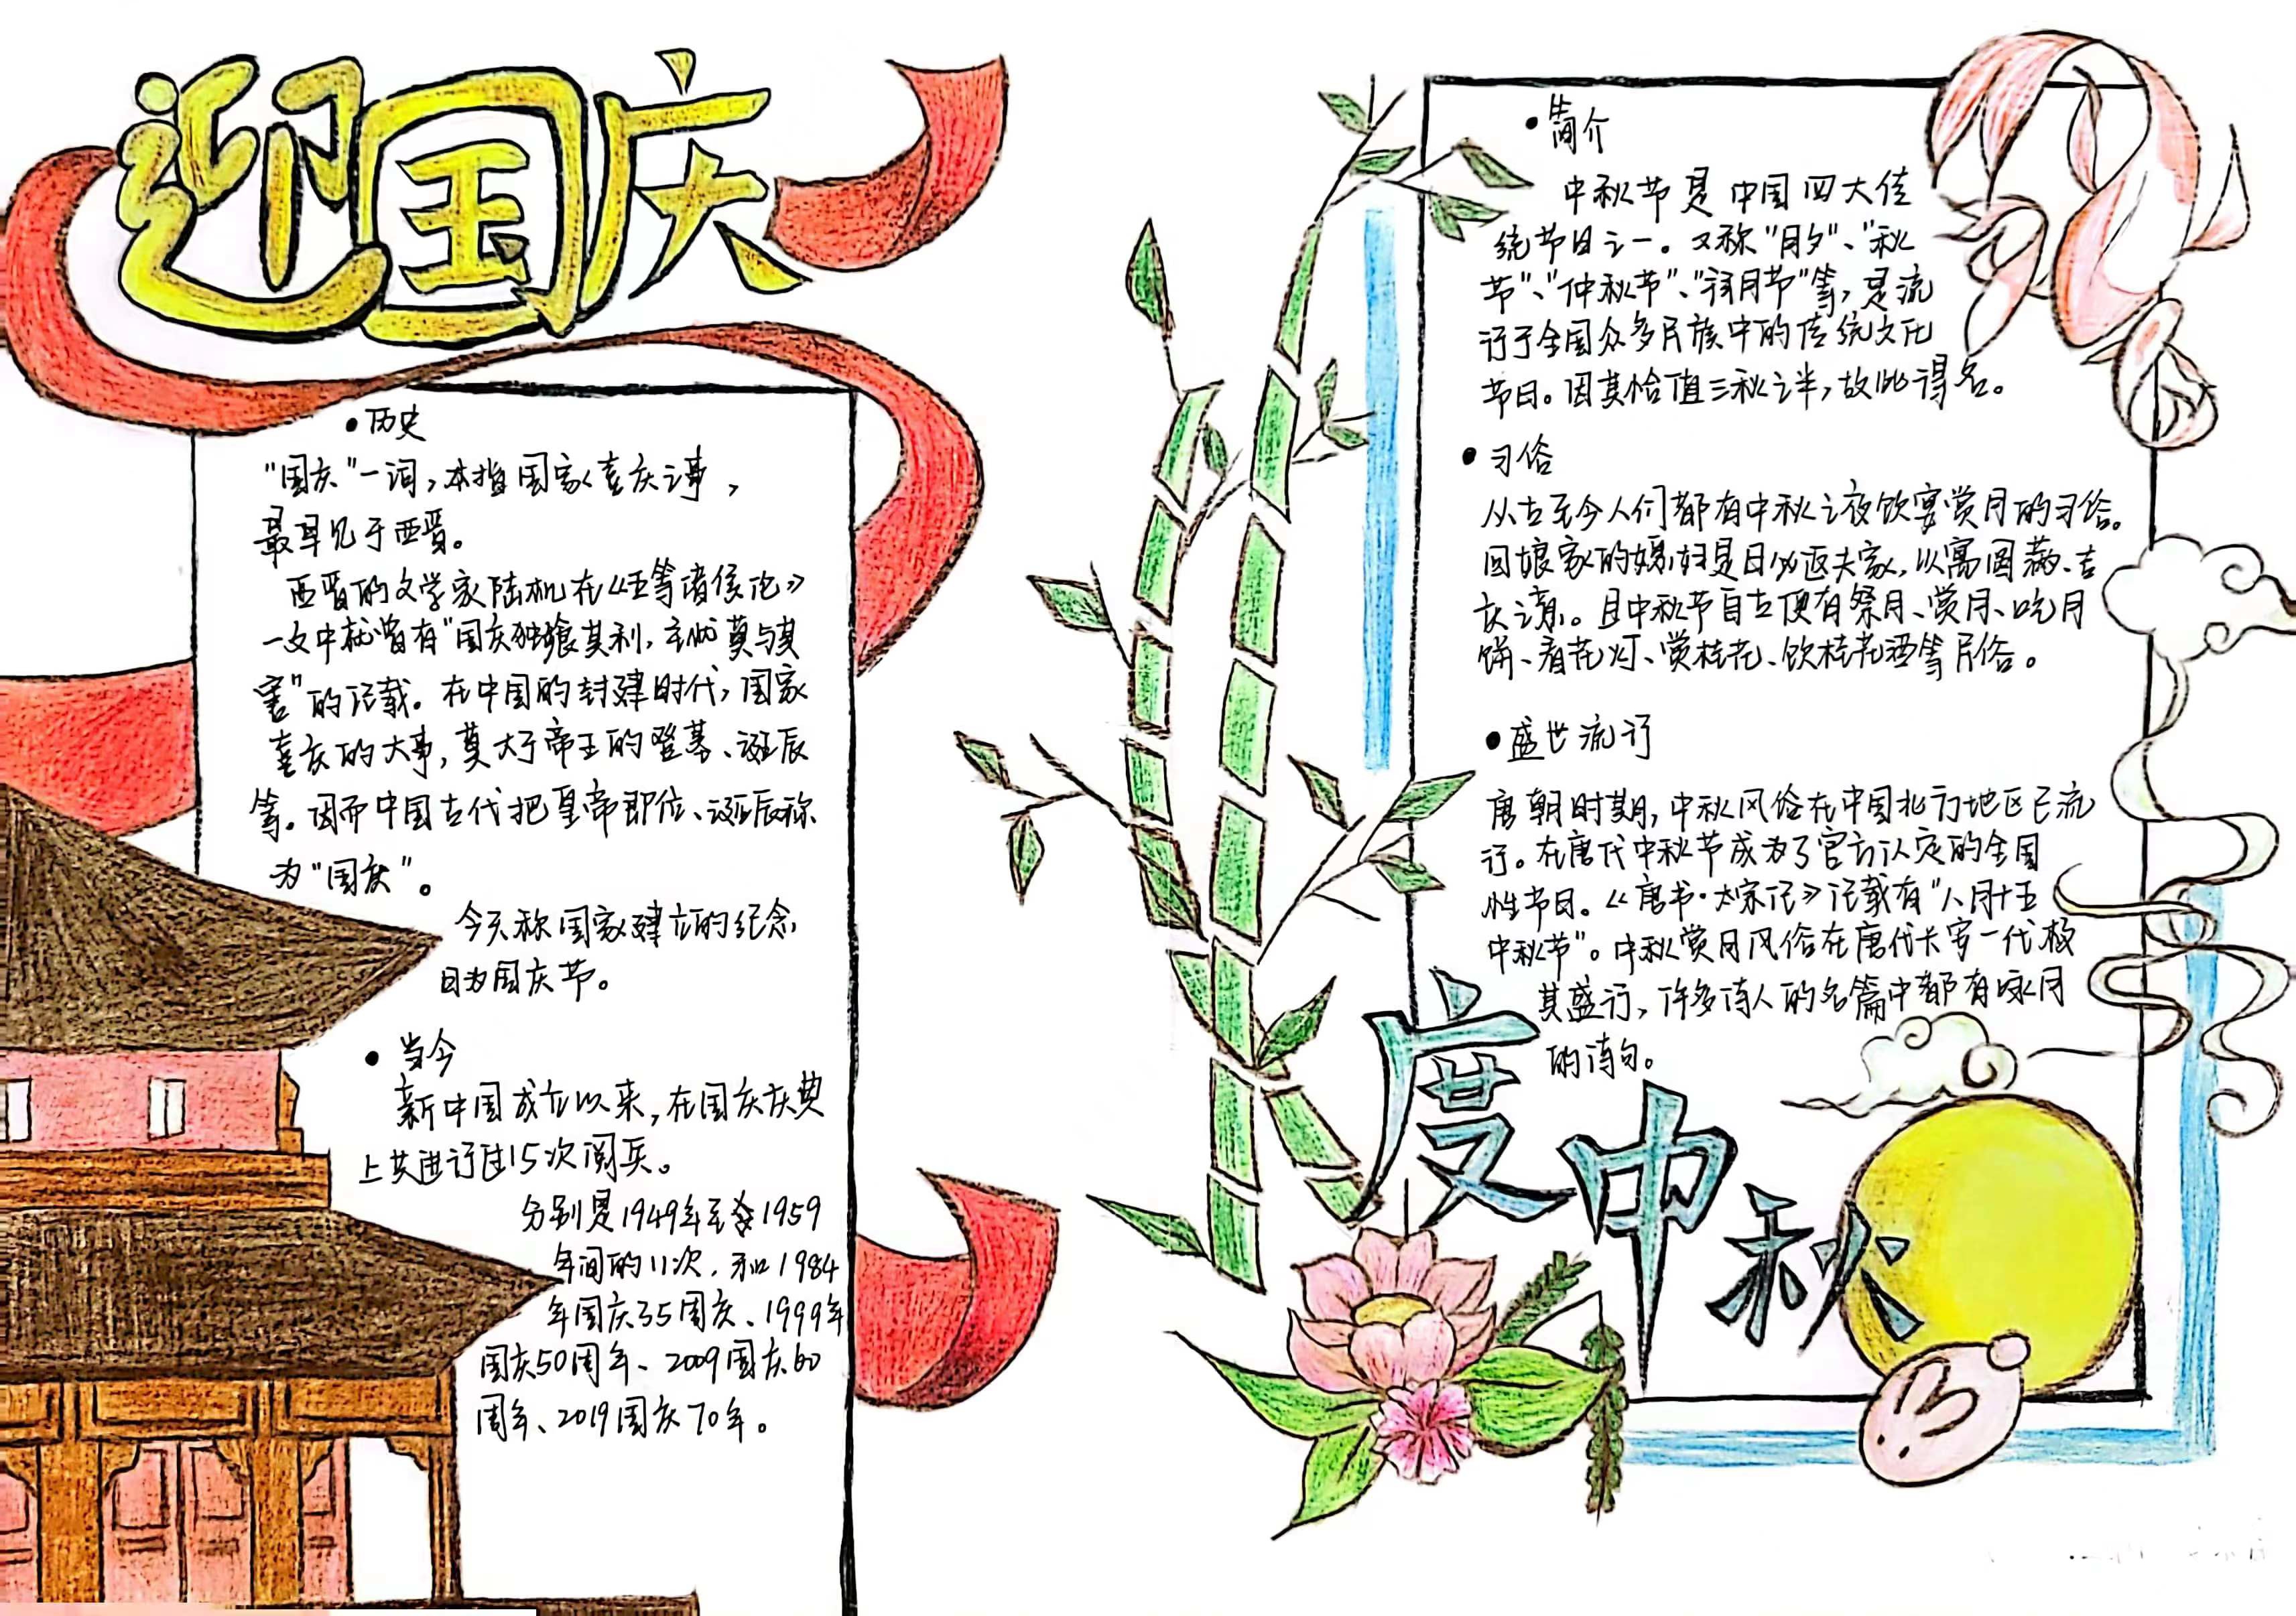 迎国庆
•历史
"国庆"一词,本指国家喜庆之事,
最早见于西晋。
西晋的文学家陆机在《五等诸侯论》
一文中就曾有"国庆独飨其利,主忧莫与其
害"的记载。在中国的封建时代,国家
喜庆的大事,莫大于帝王的登基、诞辰
等。因而中国古代把皇帝即位、诞辰称
为"国庆"。
今天称国家建立的纪念
日为国庆节。
•当今
新中国成立以来,在国庆庆典
上共进行过15次阅兵。
分别是1949年至1959
年间的11次,和1984
年国庆35周庆、1999年
国庆50周年、2009国庆60
周年、2019国庆70年。
•简介
中秋节是中国四大传
统节日之一。又称"月夕"、"秋
节"、"仲秋节"、"拜月节"等,是流
行于全国众多民族中的传统文化
节日。因其恰值三秋之半,故此得名。
•习俗
从古至今人们都有中秋之夜饮宴赏月的习俗。
回娘家的媳妇是日必返夫家,以寓圆满、吉
庆之意。且中秋节自古便有祭月、赏月、吃月
饼、看花灯、赏桂花、饮桂花酒等民俗。
•盛世流行
唐朝时期,中秋风俗在中国北方地区已流
行。在唐代中秋节成为了官方认定的全国
性节日。《唐书·太宗记》记载有"八月十五
中秋节"。中秋赏月风俗在唐代长安一代极
其盛行,许多诗人的名篇中都有咏月
的诗句。
度中秋